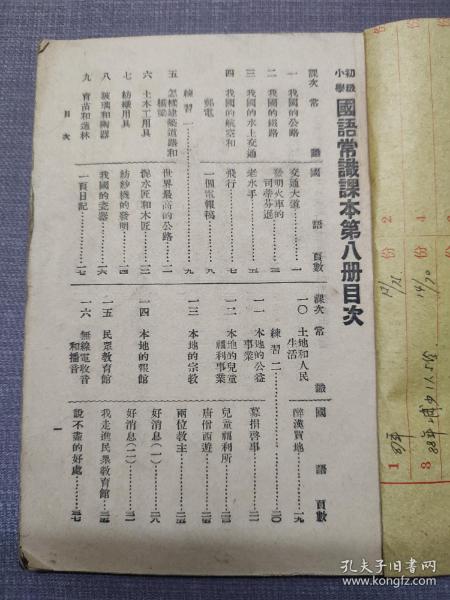 初級小學國語常識課本第八冊目次
課次 常識 國語 頁數
一 我國的公路 交通大道 一
二 我國的鐵路 發明火車的司蒂芬遜 三
三 我國的水上交通 老水手 五
四 我國的航空和郵電 飛行 七
一個電報稿 九
練習一 九
五 怎樣建築道路和橋梁 世界最高的公路 一一
六 土木工用具 泥水匠和木匠 一三
七 紡織用具 紡紗機的發明 一四
八 玻璃和陶器 我國的瓷器 一六
九 育苗和造林 一頁日記 一七
課次 常識 國語 頁數
一〇 土地和人民生活 醉漢買地 一九
練習二 二〇
一一 本地的公益事業 募捐啓事 二二
一二 本地的兒童福利事業 兒童福利所 二三
一三 本地的宗教 唐僧西遊 二四
兩位教主 二五
一四 本地的報館 好消息(一) 二八
好消息(二) 三一
一五 民眾教育館 我走進民眾教育館 三五
一六 無線電收音和播音 說不盡的好處 三七
目次
一
2
份
12/21
1
87年
4
份
14/20
3
88年
6
份
5
孔夫子旧书网
www.kongfz.com